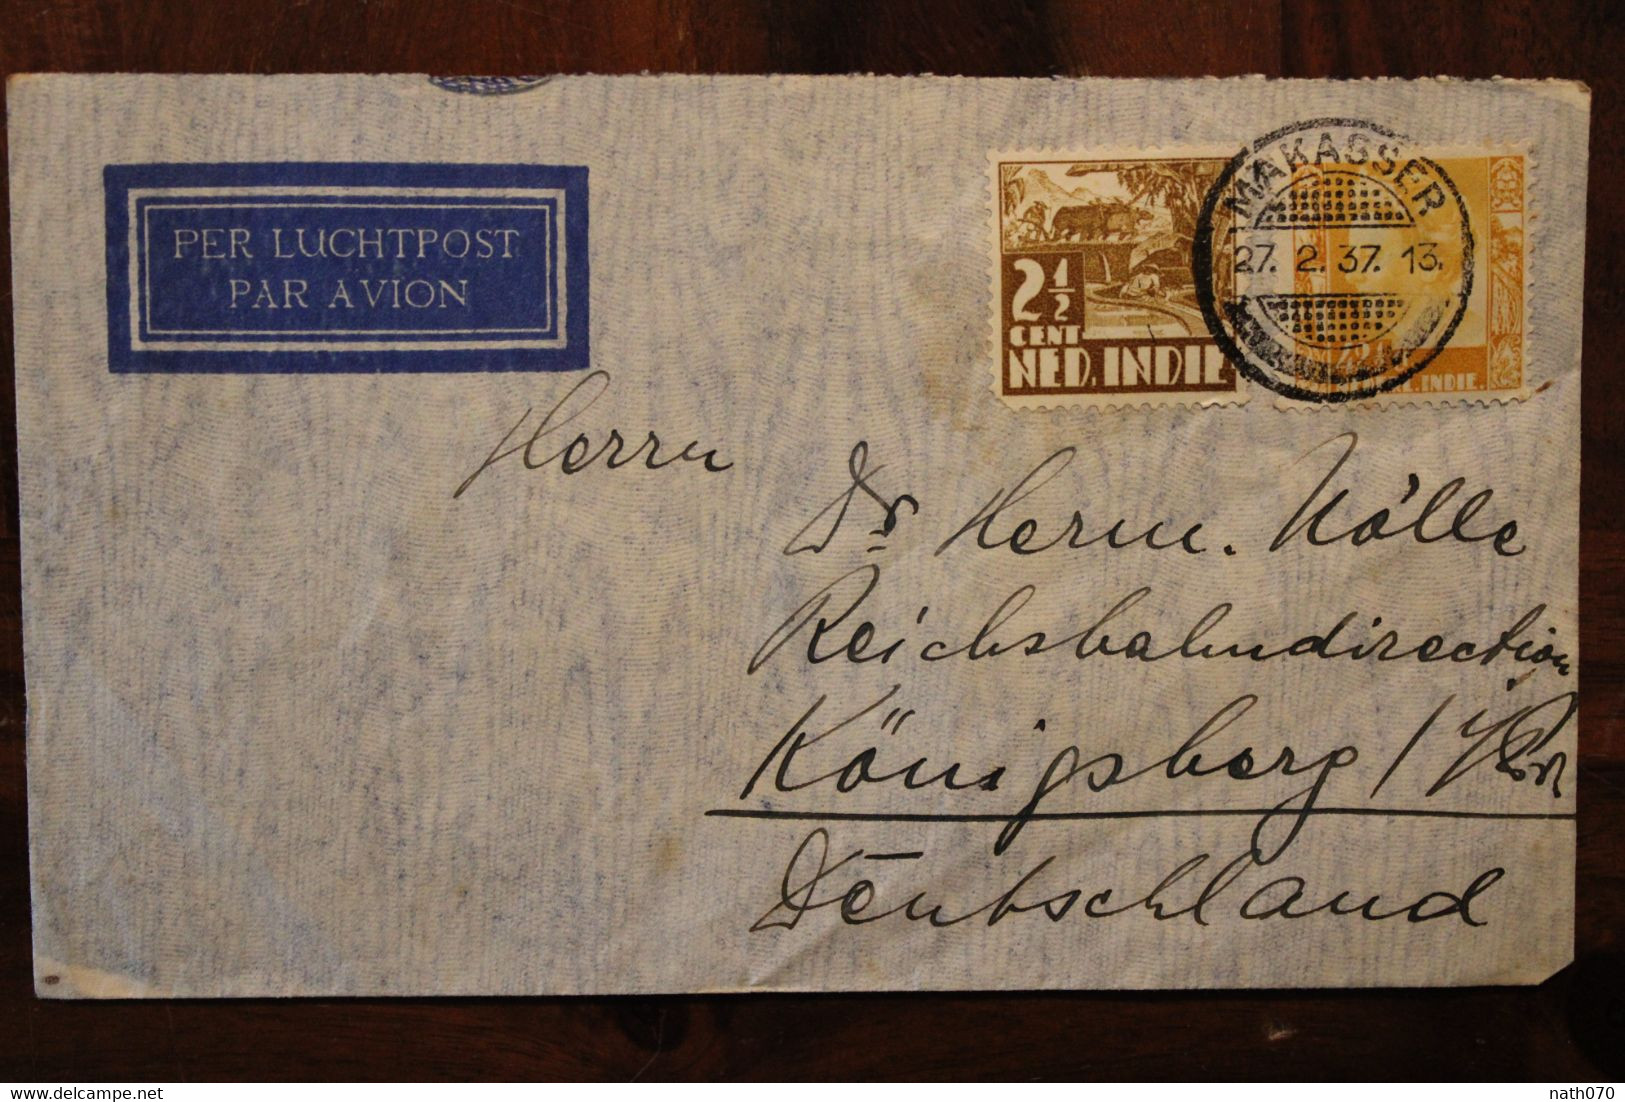 PER LUCHTPOST
PAR AVION
2 1/2
CENT
NED. INDIE
MAKASSER
27. 2. 37. 13.
42½
INDIE.
Herrn
Dr Herm. Nölle
Reichsbahndirection
Königsberg / Pr
Deutschland
nath070